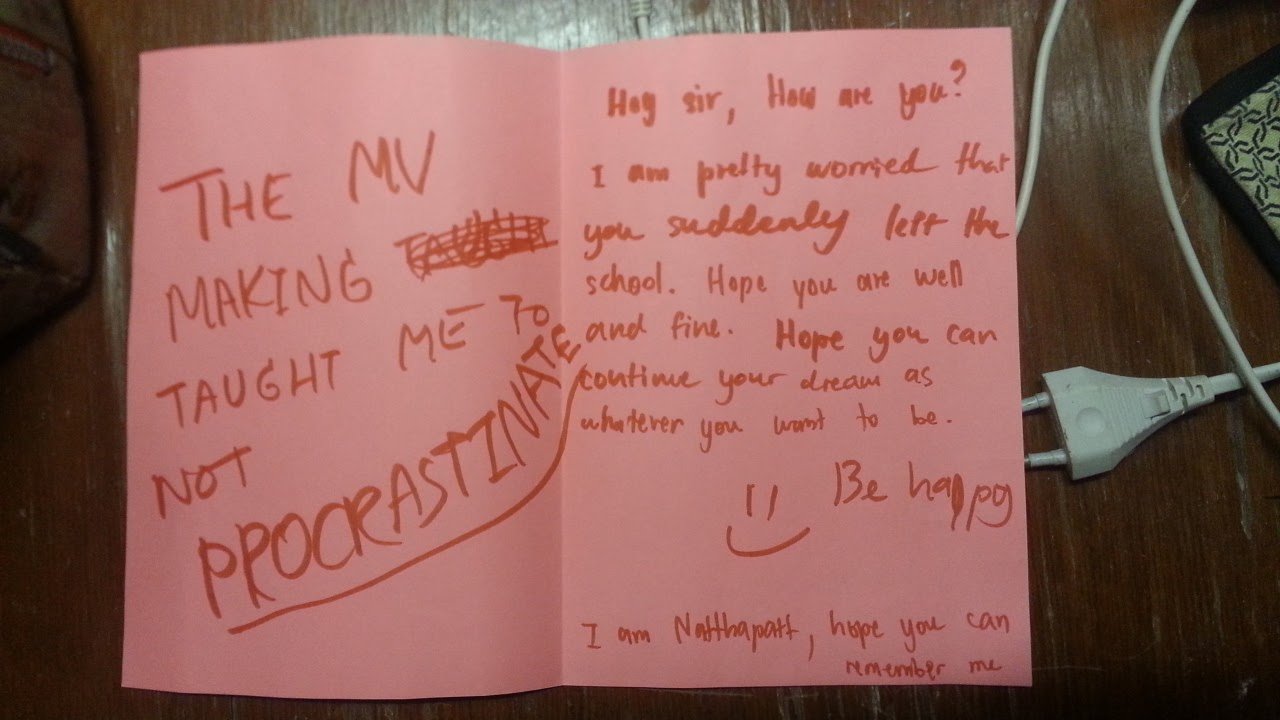 THE MV
MAKING
TAUGHT ME TO
NOT
PROCRASTINATE
Hey sir, How are you?
I am pretty worried that
you suddenly left the
school. Hope you are well
and fine. Hope you can
continue your dream as
whatever you want to be.
Be happy
I am Natthapatt, hope you can
remember me